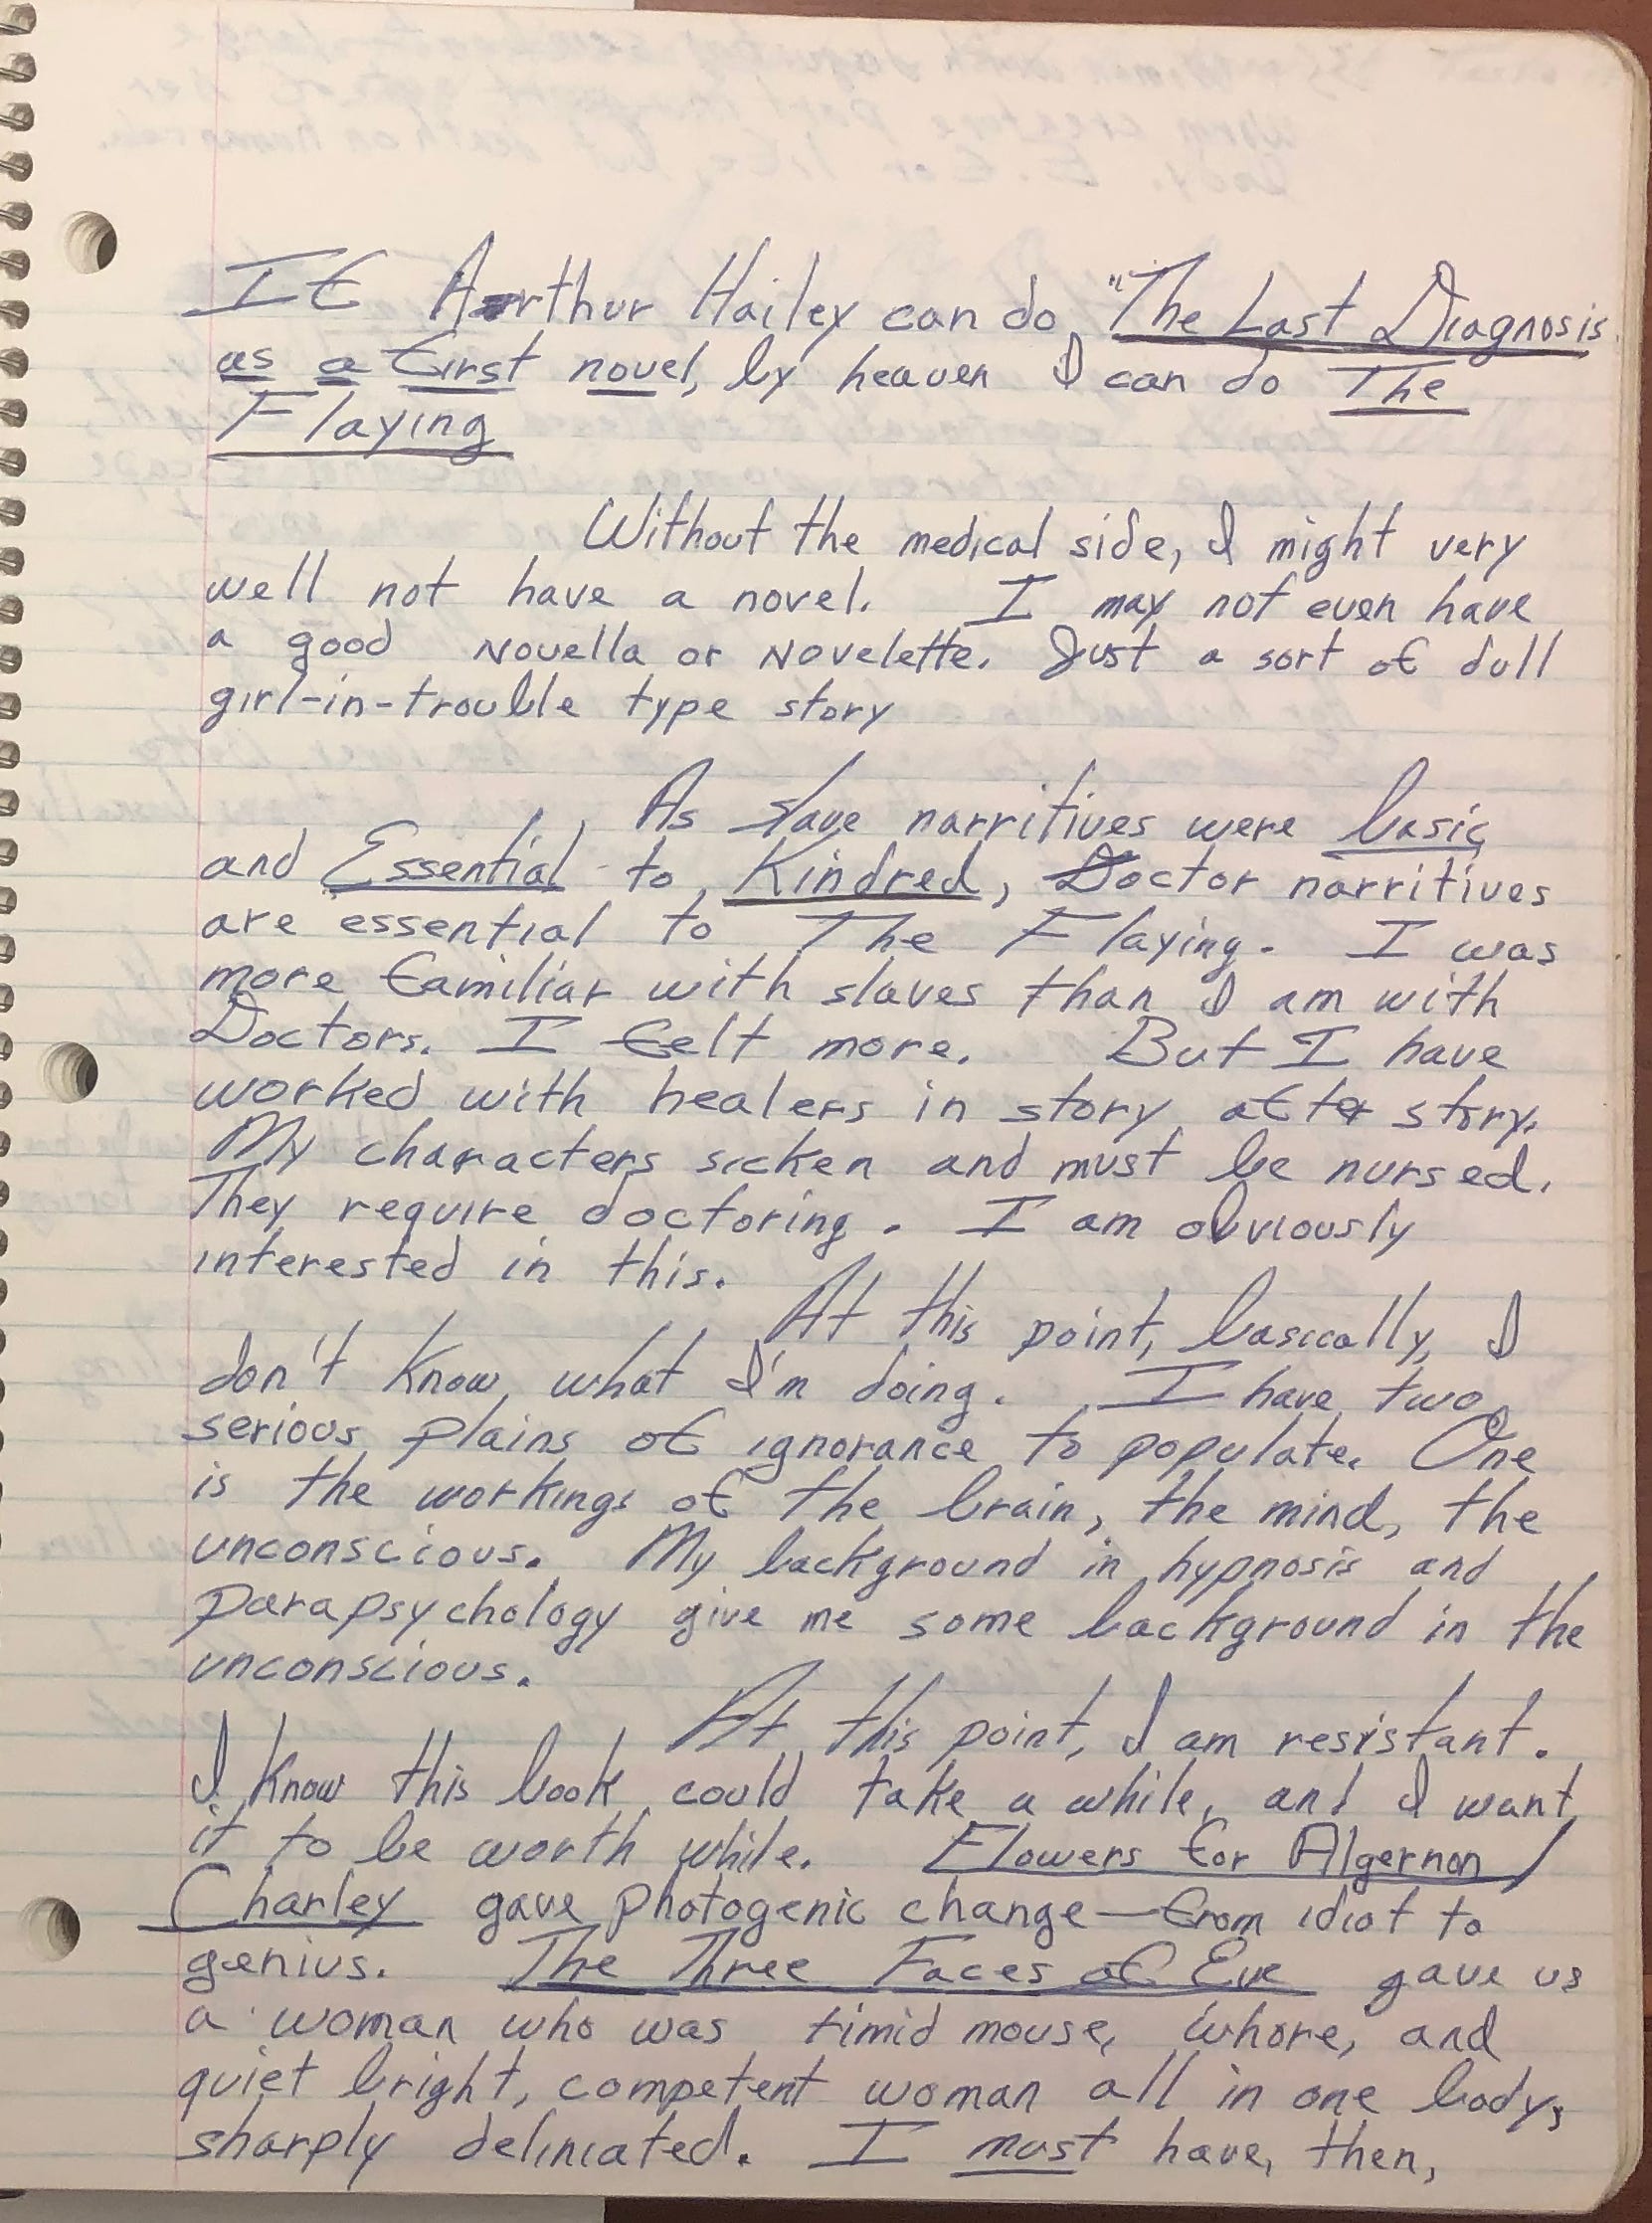 If Arthur Hailey can do "The Last Diagnosis
as a first novel, by heaven I can do The
Flaying
Without the medical side, I might very
well not have a novel. I may not even have
a good Novella or Novelette. Just a sort of dull
girl-in-trouble type story
As slave narritives were basic
and Essential to Kindred, Doctor narritives
are essential to The Flaying. I was
more familiar with slaves than I am with
Doctors. I felt more. But I have
worked with healers in story after story.
My characters sicken and must be nursed.
They require doctoring. I am obviously
interested in this.
At this point, basically, I
don't know what I'm doing. I have two
serious plains of ignorance to populate. One
is the workings of the brain, the mind, the
unconscious. My background in hypnosis and
parapsychology give me some background in the
unconscious.
At this point, I am resistant.
I know this book could take a while, and I want
it to be worth while. Flowers for Algernon/
Charley gave photogenic change—from idiot to
genius. The Three Faces of Eve gave us
a woman who was timid mouse, whore, and
quiet bright, competent woman all in one body,
sharply deliniated. I must have, then,